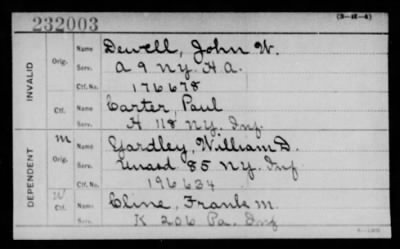 232003
(3-2)
INVALID
Orig.
Name Dewell, John W.
Serv. A 9 N.Y. H A.
Ctf. No. 176678
Ctf.
Name Carter, Paul
Serv. H 118 N.Y. Inf
DEPENDENT
M
Orig.
Name Yardley, William D.
Serv. Unasd 85 N.Y. Inf
Ctf. No. 196634
W
Ctf.
Name Cline, Frank M.
Serv. K 206 Pa. Inf